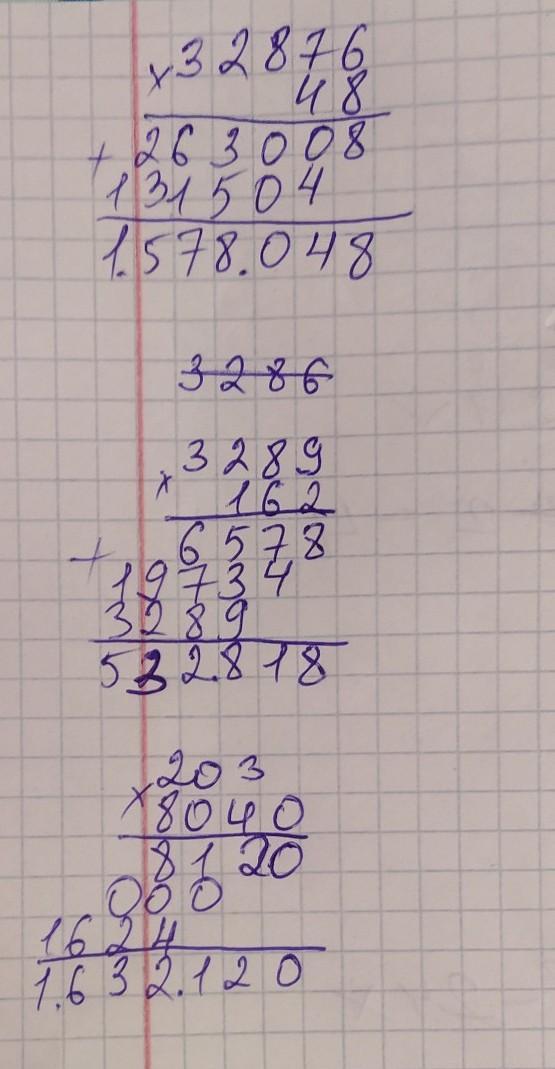 × 32876
48
+ 263008
131504
1.578.048
3286
3289
× 162
+ 6578
19734
3289
532.818
× 203
8040
8120
000
1624
1.632.120